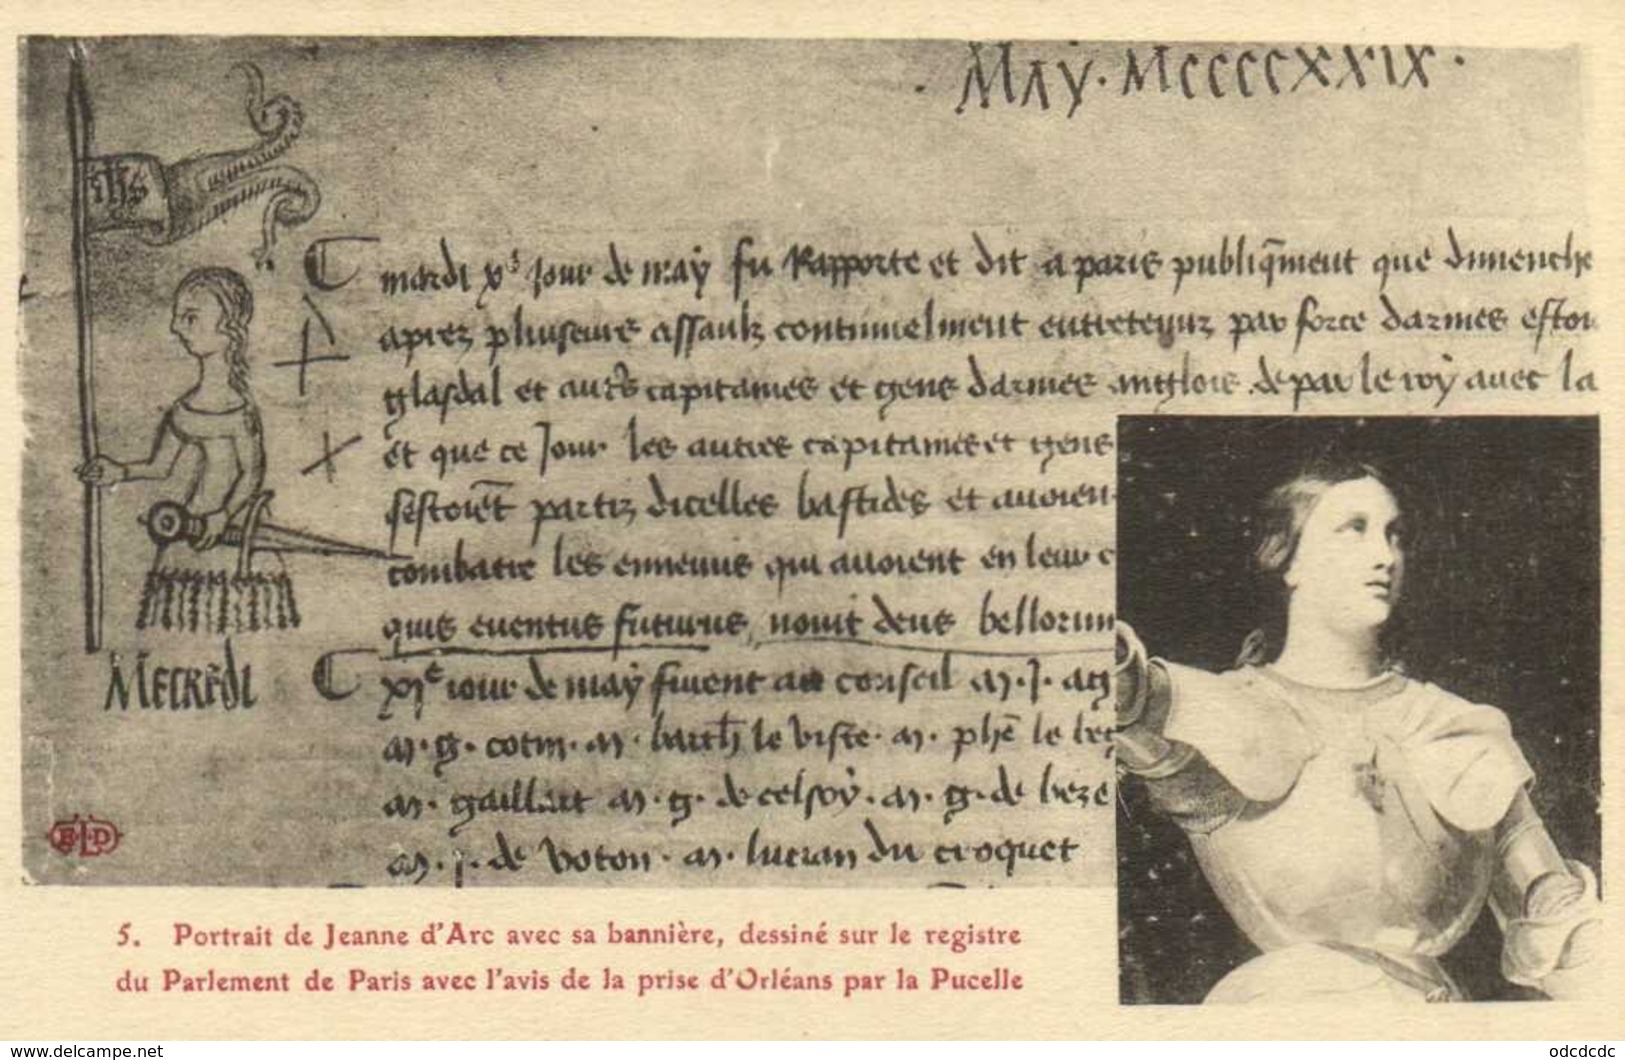 May · MCCCCXXIX ·
ihs
mardi xe jour de may fu Rapporte et dit a paris publiqment que dimenche
apres pluiseurs assaulz continuelment entretenuz par force darmes estoi
glasdal et autrs capitaines et gens darmes anglois de par le roy avec la
et que ce jour les autres capitaines et gens
sestoiēt partiz dicelles bastides et avoien
combatre les ennemis qui avoient en leur c
quis eventus futurus novit deus bellorum
Mecredi
xie jour de may furent au conseil m. J. ag
m. g. cotin. m. barth le viste. m. phe le beg
m. gaillart m. g. de celsoy. m. g. de beze
m. j. de voton. m. lucian du croquet
ELD
5. Portrait de Jeanne d'Arc avec sa bannière, dessiné sur le registre
du Parlement de Paris avec l'avis de la prise d'Orléans par la Pucelle
© delcampe.net
odcdcdc